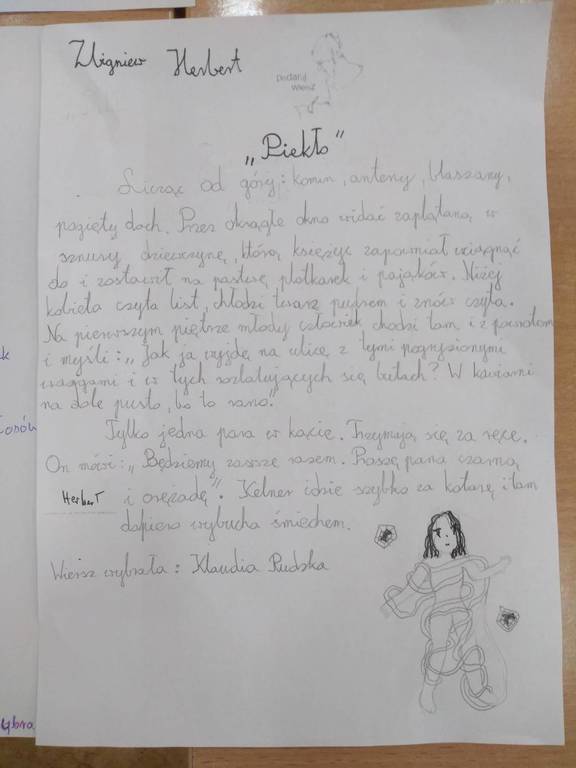 Zbigniew Herbert
podaruj wiersz
„Piekło”
Licząc od góry: komin, anteny, blaszany,
pogięty dach. Przez okrągłe okno widać zaplątaną w
sznury dziewczynę, którą księżyc zapomniał wciągnąć
do i zostawił na pastwę plotkarek i pająków. Niżej
kobieta czyta list, chłodzi twarz pudrem i znów czyta.
Na pierwszym piętrze młody człowiek chodzi tam i z powrotem
i myśli: „Jak ja wyjdę na ulicę z tymi pogryzionymi
wargami i w tych rozlatujących się butach? W kawiarni
na dole pusto, bo to rano.”
Tylko jedna para w kącie. Trzymają się za ręce.
On mówi: „Będziemy zawsze razem. Proszę pana czarną
Herbert
i oranżadę”. Kelner idzie szybko za kotarę i tam
dopiero wybucha śmiechem.
Wiersz wybrała: Klaudia Rudzka